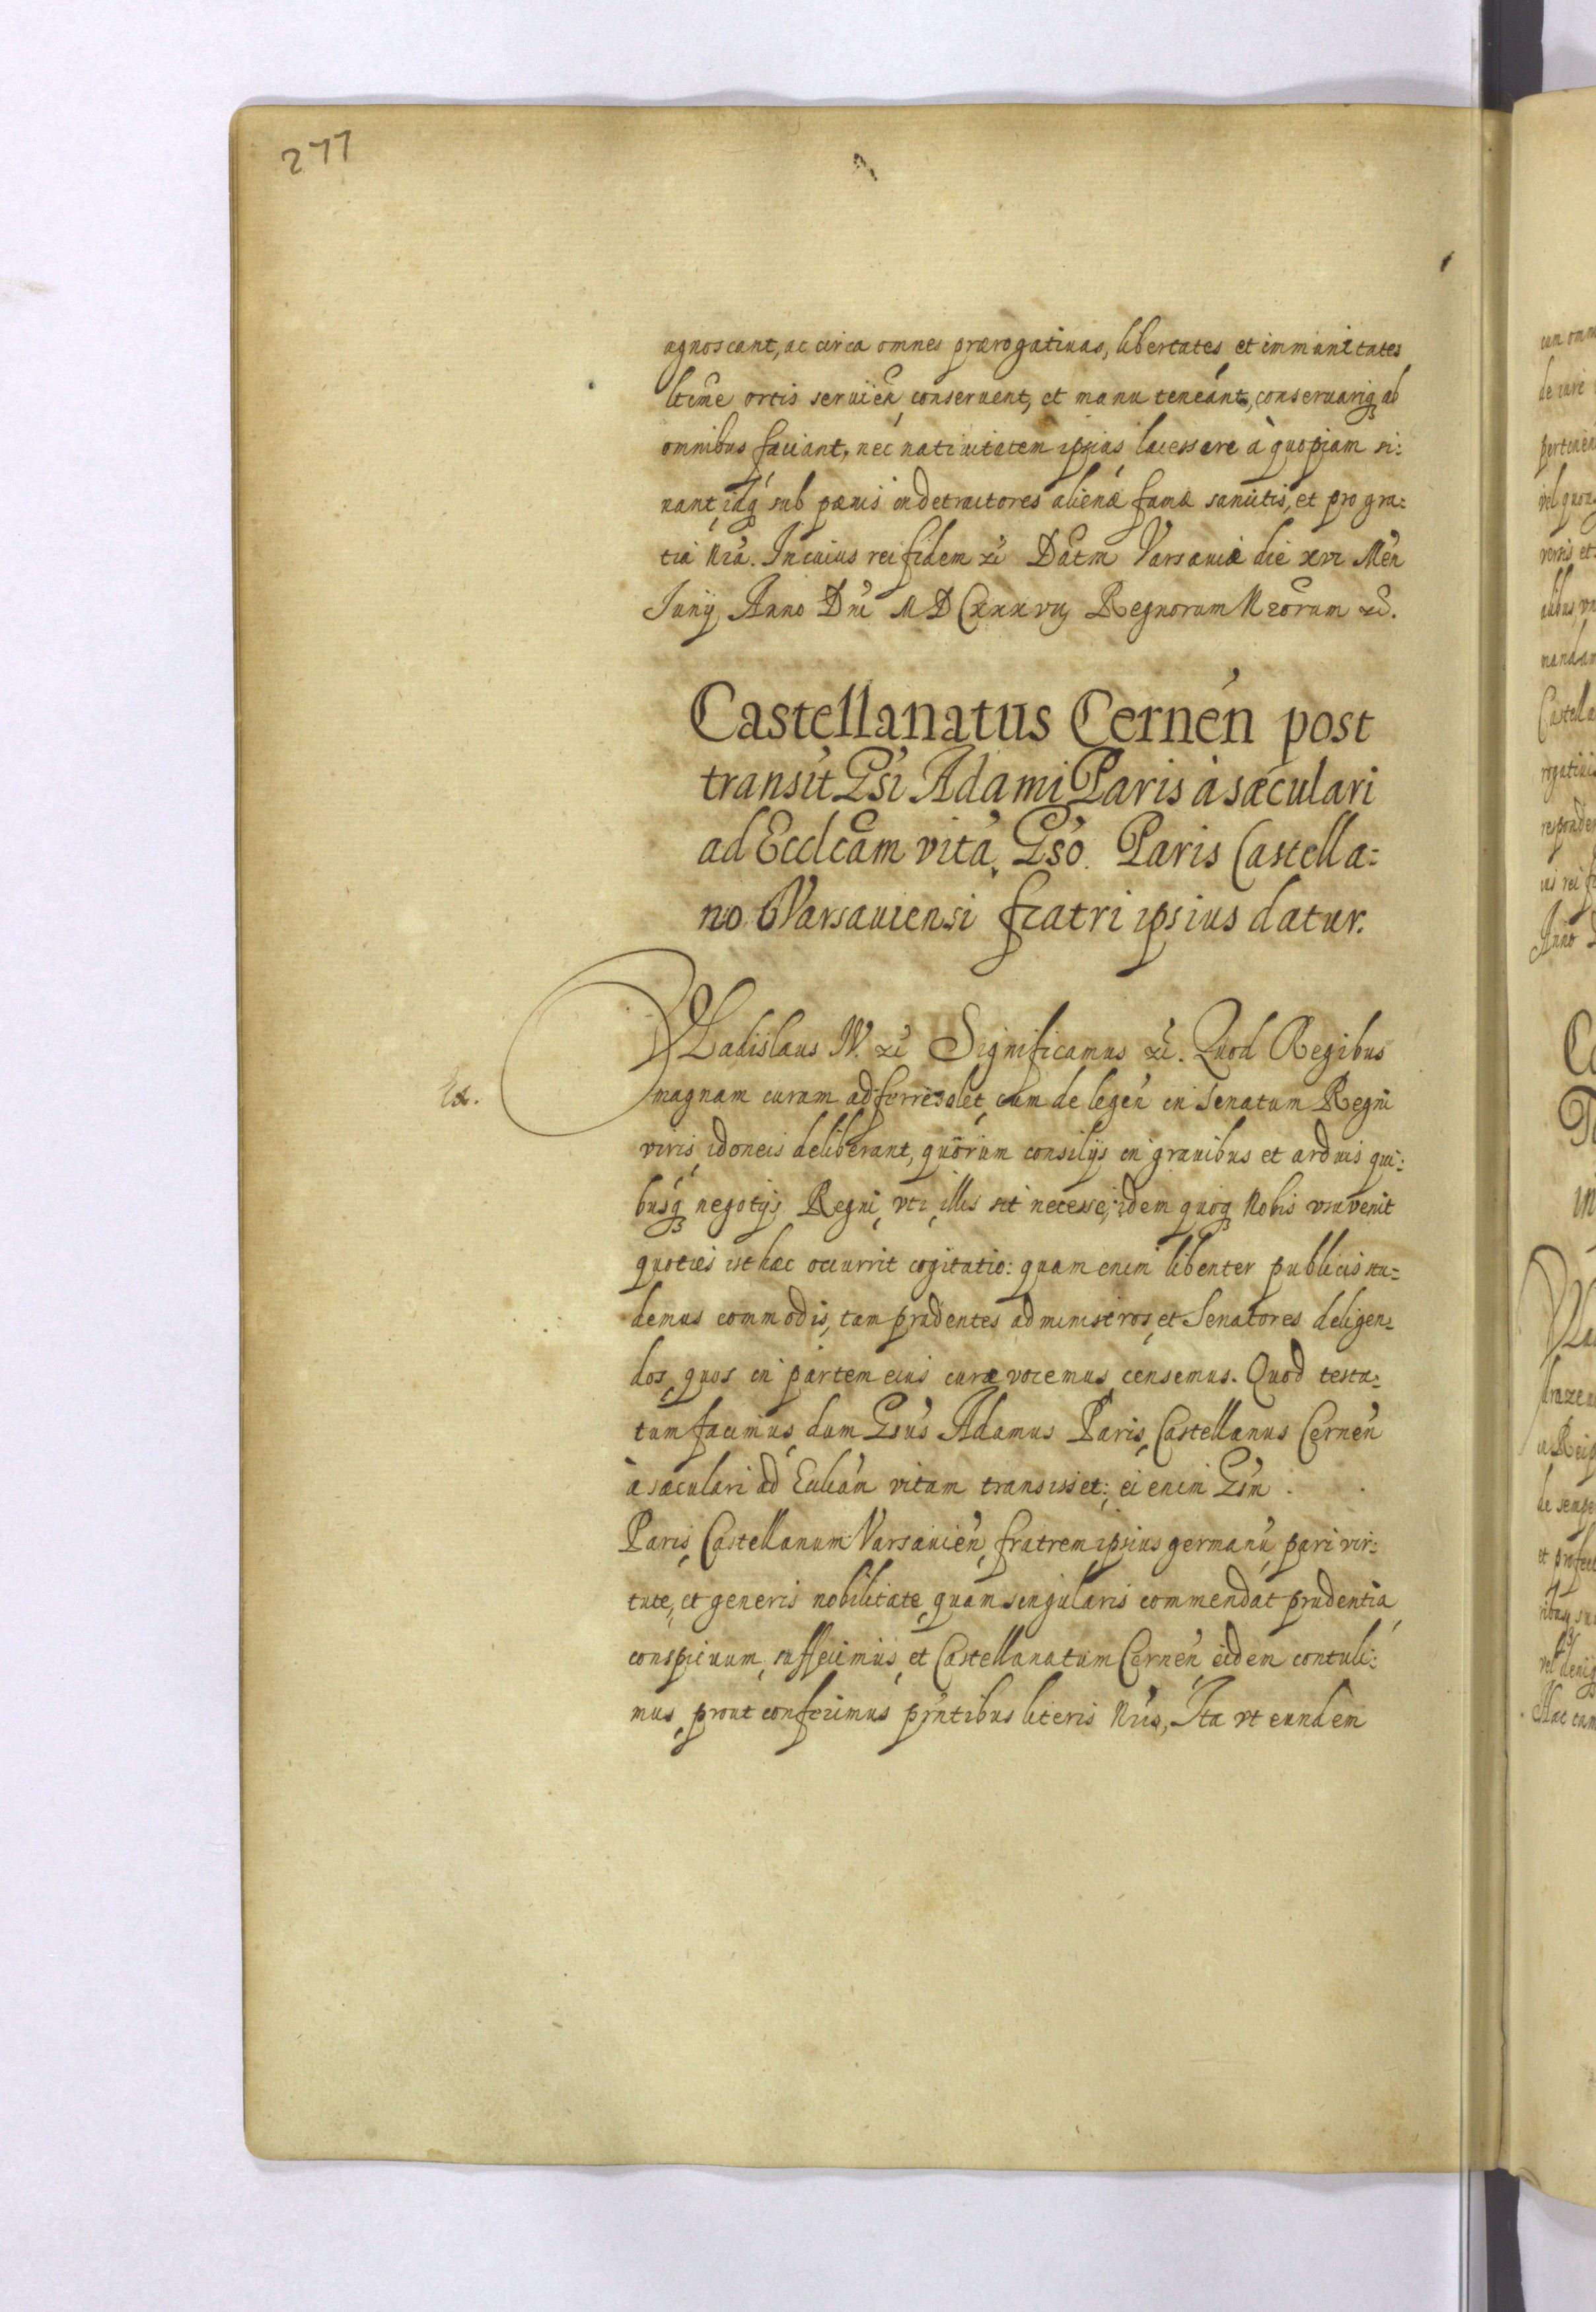 277
agnoscant, ac circa omnes prærogatiuas, libertates et immunitates
ltime ortis seruieñ conseruent, et manu teneant, conseruariq ab
omnibus faciant, nec natiuitatem ipsius lacessere à quopiam si:
nant, idq sub pænis in detractores alienæ famæ sancitis, et pro gra:
tia Nra. In cuius rei fidem &c Datm Varsauiæ die xvi Men
Junij Anno Dni MDCxxxvij Regnorum Nrorum &c.
Castellanatus Cerneń post
transit Gsi Adami Paris à sæculari
ad Ecclcam vitā, Gso. Paris Castella:
no Varsauiensi fratri ipsius datur.
VLadislaus IV. &c Significamus &c. Quod Regibus
Ex.
magnam curam adferre solet, cum de legeń in Senatum Regni
viris idoneis deliberant, quorum consilijs in grauibus et arduis qui:
busq negotijs Regni vti illis sit necesse; idem quoq Nobis vsu venit
quoties isthæc occurrit cogitatio: quam enim libenter publicis stu:
demus commodis, tam prudentes administros, et Senatores deligen:
dos, quos in partem eius curæ vocemus, censemus. Quod testa:
tum facimus, dum Gsus Adamus Paris Castellanus Cerneń
à sæculari ad Eccliam vitam transisset; ei enim Gsm .
Paris, Castellanum Varsauień, fratrem ipsius germanū, pari vir:
tute, et generis nobilitate, quam singularis commendat prudentia
conspicuum, suffecimus, et Castellanatum Cerneń eidem contuli:
mus, prout conferimus pntibus literis Nris, Ita vt eundem